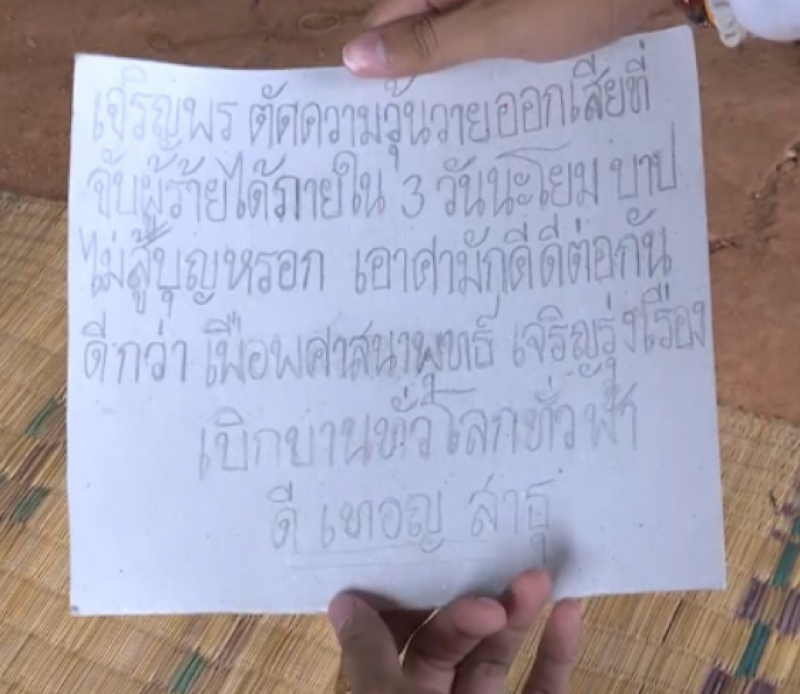 เจริญพร ตัดความวุ้นวายออกเสียที่
จับผู้ร้ายได้ภายใน 3 วันนะโยม บาป
ไม่สู้บุญหรอก เอาศามักดีดีต่อกัน
ดีกว่า เผื่อพศาสนาพุทธ์ เจริญรุ่งเรือง
เบิกบานทั่วโลกทั่วฟ้า
ดี เทอญ สาธุ